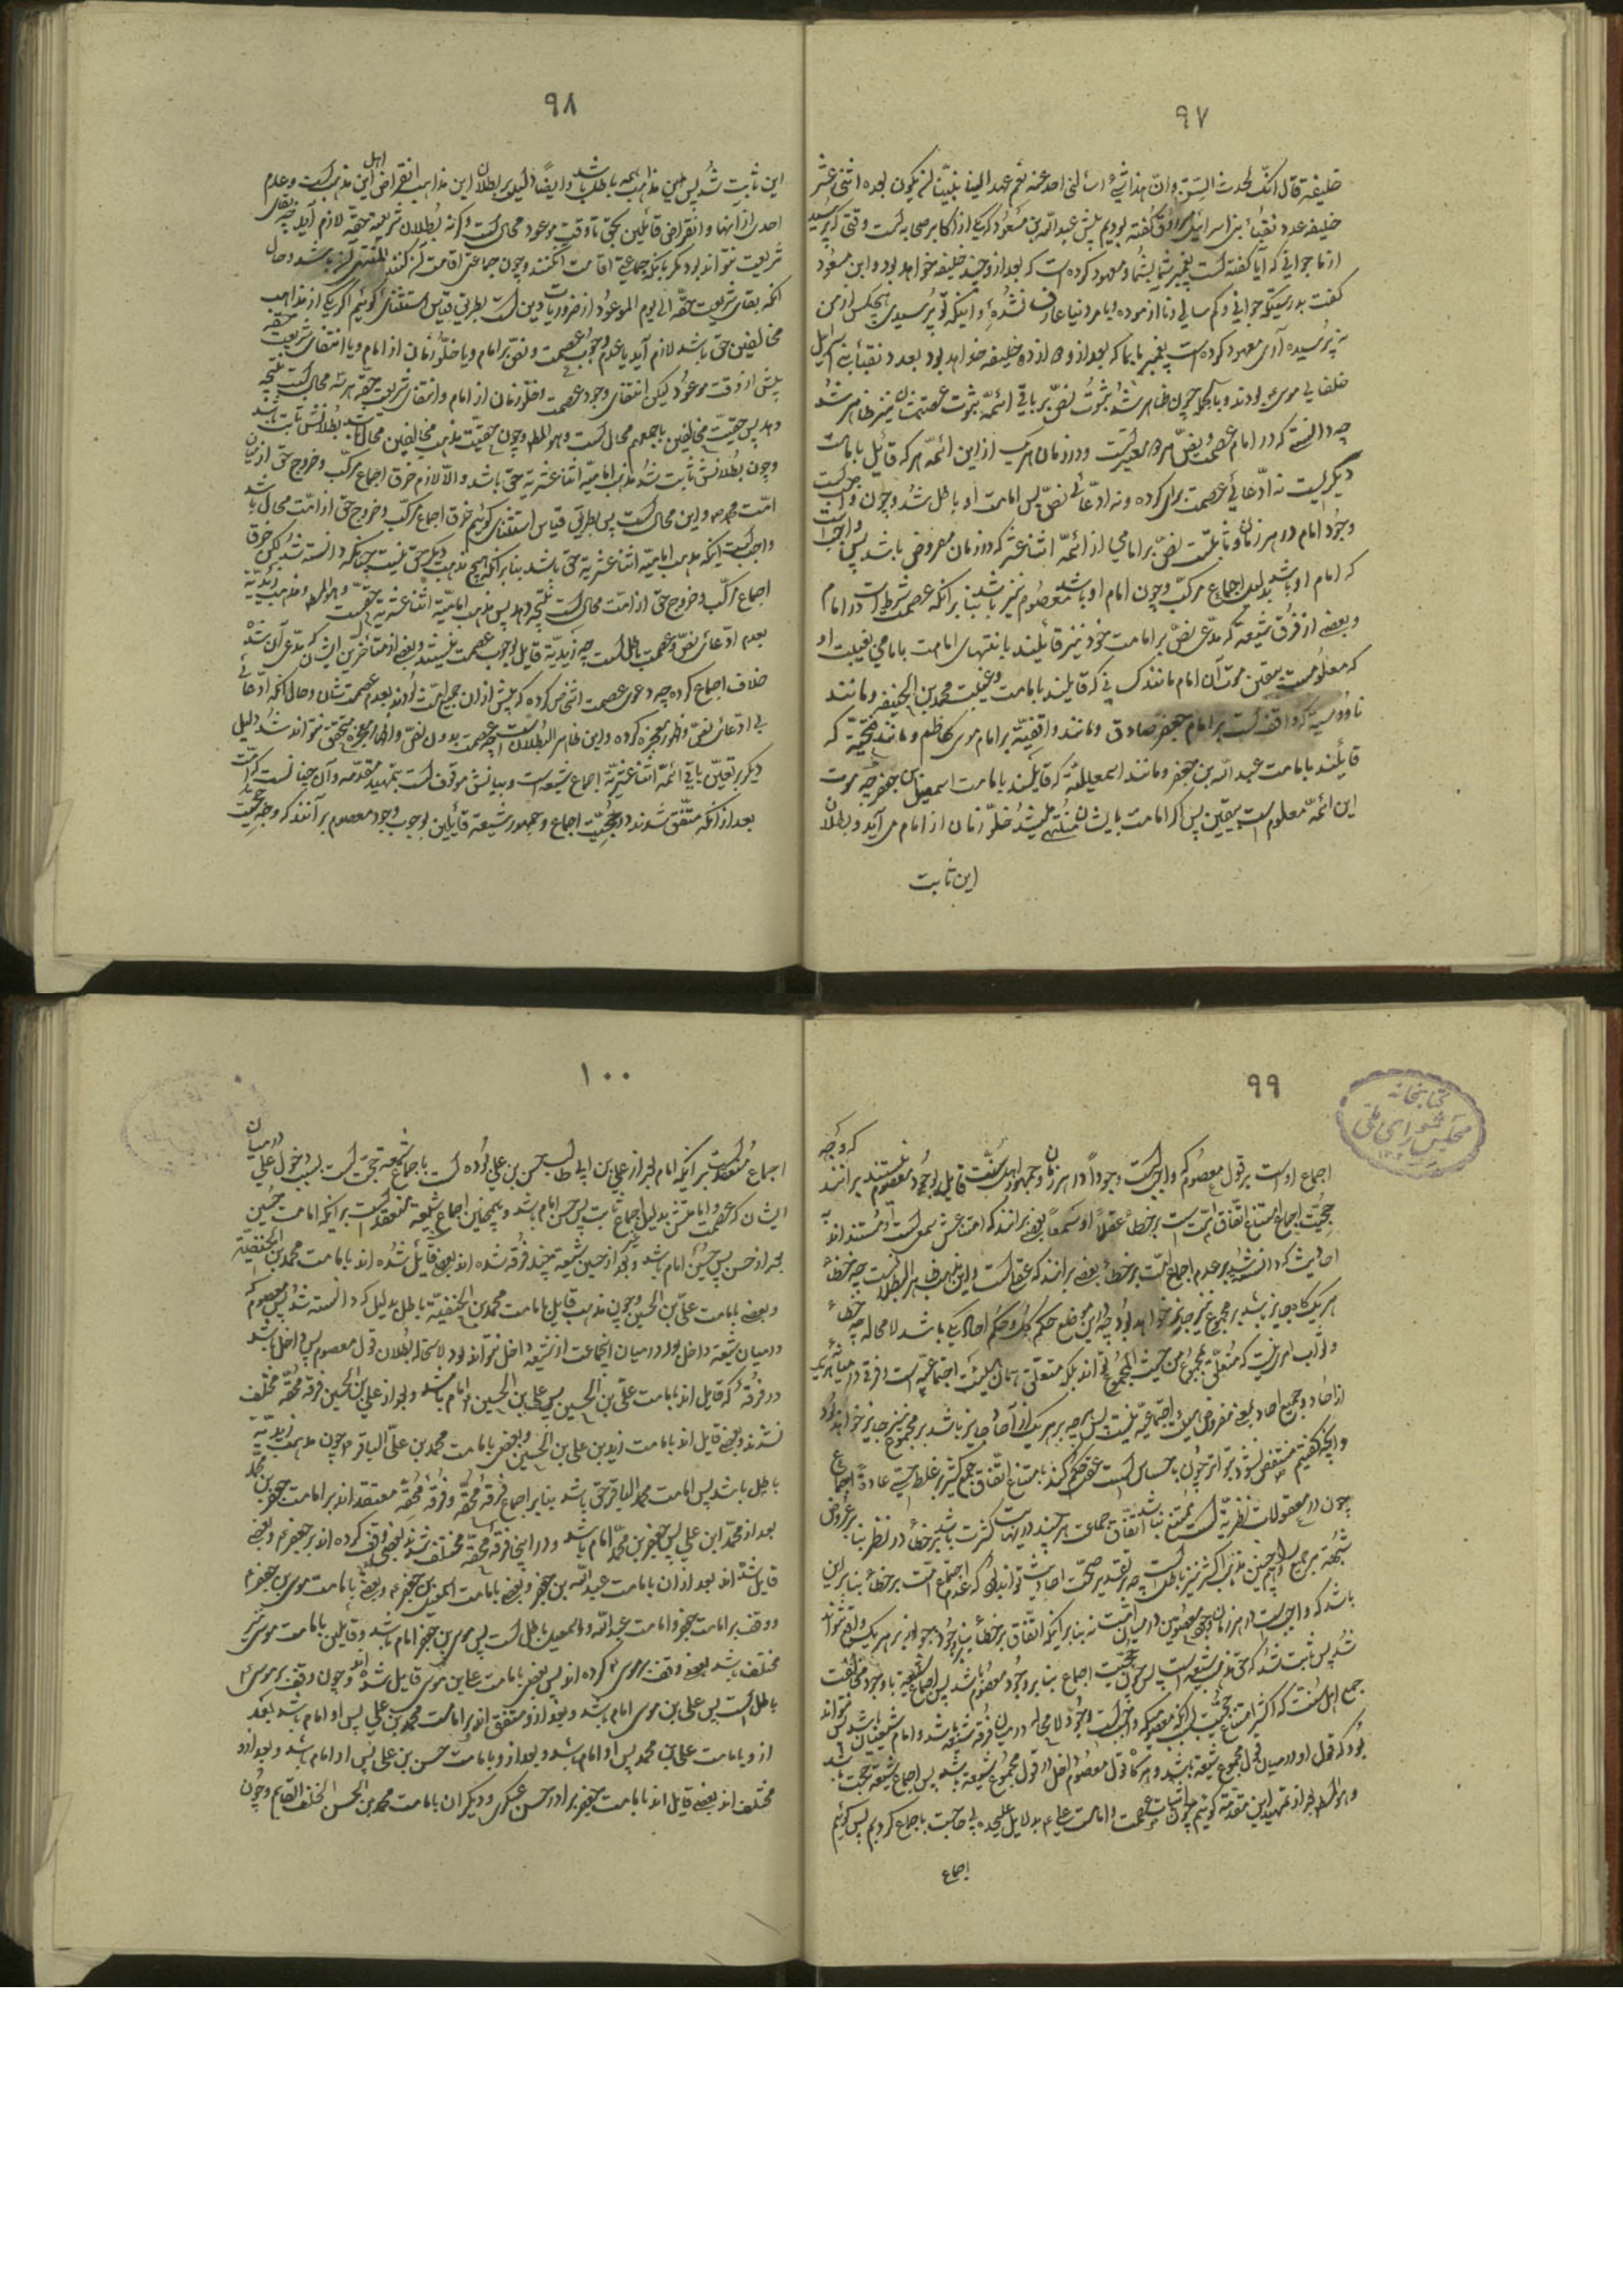 ٩٧
خلیفة قال انک لحدث السن وان هذا شیء ما سألنی احد عنه نعم عهد الینا نبینا انه یکون بعده اثنی عشر
خلیفه عدد نقباء بنی اسرائیل گفته بودیم پیش عبدالله بن مسعود که یکی از اکابر صحابه است وقتی که پرسید
از ما جوانی که آیا گفته است پیغمبر شما بشما و معهود کرده است که بعد از و چند خلیفه خواهد بود و ابن مسعود
گفت بدرستیکه جوانی و کم سالی و نا ازموده و بامر دنیا عارف نشده و اینکه تو پرسیدی هیچکس از من
نپرسیده آری معهود کرده است پیغمبر ما بما که بعد از و دوازده خلیفه خواهد بود بعدد نقباء بنی اسرائیل
خلفای موسی بودند و بالجمله چون ظاهر شد ثبوت نص بر باقی ائمه ثبوت عصمتشان نیز ظاهر شد
چه دانستی که در امام عصمت و نص هر دو معتبر است و در زمان هر یک از این ائمه هر که قائل بامامت
دیگریست نه ادعائی عصمت برای او کرده و نه ادعائی نص پس امامت او باطل شد و چون واجب است
وجود امام در هر زمان و ثابتست نص بر امامی از ائمه اثناعشر که در زمان مفروض باشد پس واجب است
که امام او باشد بدلیل اجماع مرکب و چون امام او باشد معصوم نیز باشد بنا بر آنکه عصمت شرط است در امام
و بعضی از فرق شیعه که مدعی نص بر امامت خود نیز قائلند بانتهای امامت بامامی بغیبت او
که معلومست بیقین موت آن امام مانند کسانی که قایلند بامامت و غیبت محمد بن الحنفیه و مانند
ناووسیه که واقف است بر امام جعفر صادق و مانند واقفیه بر امام موسی کاظم و مانند فتحیه که
قائلند بامامت عبدالله بن جعفر و مانند اسمعیلیه که قایلند بامامت اسمعیل بن جعفر چه موت
این ائمه معلوم است بیقین پس اگر امامت بایشان منتهی میشد خلو زمان از امام می آید و بطلان
این ثابت
٩٨
این ثابت شد پس این مذاهب همه باطل باشد و ایضا دلیل بر بطلان این مذاهب انقراض اهل این مذهب است و عدم
احدی از اینها و انقراض قائلین بحق تا وقت موعود محال است و الا بطلان شریعه حقه لازم آید چه بقای
شریعت نتواند بود مگر بآنکه جماعتی اقامت آن کنند و چون جماعتی اقامت آن نکنند باشد و حال
آنکه بقای شریعت حقه الی یوم الموعود از ضروریات دین است بطریق قیاس استثنائی گوئیم اگر یکی از مذاهب
مخالفین حق باشد لازم آید یا عدم وجوب عصمت و نص بر امام و یا خلو زمان از امام و یا انتفای شریعت حقه
پیش از وقت موعود لیکن انتفای وجود عصمت و خلو زمان از امام و انتفای شریعت حقه هر سه محال است نتیجه
دهد پس حقیت مخالفین باجمعهم محال است و هو المط و چون حقیت مذهب مخالفین محال باشد بطلانش ثابت باشد
و چون بطلانش ثابت شد مذهب امامیه اثنا عشریه حق باشد و الا لازم خرق اجماع مرکب و خروج حق از میان
امت محمد و این محال است پس بطریق قیاس استثنائی گوئیم خرق اجماع مرکب و خروج حق از امت محال باشد
واجب است اینکه مذهب امامیه اثنا عشریه حق باشد بنا بر آنکه هیچ مذهب دیگر حق نیست چنانکه دانسته شد لیکن خرق
اجماع مرکب و خروج حق از امت محال است نتیجه دهد پس مذهب امامیه اثنا عشریه حق است و هو المط و مذهب زیدیه
بعدم ادعای نص و عصمت باطل است چه زیدیه قایل بوجوب عصمت نیستند و بعضی از متأخرین ایشان که مدعی آن شده
خلاف اجماع کرده چه دعوی عصمت اشخاص کرده که پیش از آن جمیع امت بودند بعدم عصمتشان و حال آنکه ادعائی
بی ادعای نص و ظهور معجزه کرده و این ظاهر البطلان است چه عصمت بدون نص و اظهار معجزه متحقق نتواند شد دلیل
دیگر بر تعین باقی ائمه اثنا عشریه اجماع شیعه است و بیانش موقوف است بتمهید مقدمه و آن چنانست که امت
بعد از آنکه متفق شوند در حجیت اجماع و جمهور شیعه قائلین بوجوب وجود معصوم بر آنند که وجه حجیت
٩٩
کتابخانه
مجلس شورای ملی
که وجه
اجماع او است بر قول معصوم که واجب است وجود او در هر زمان و جمهور اهل سنت که قایل بوجود معصوم نیستند بر آنند
حجیت اجماع امتناع اتفاق امت است بر خطا عقلا او سمعا بعضی بر آنند که امتناعش سمعی است و مستند اند به
احادیث که دانسته شد بر عدم اجماع امت بر خطا و بعضی بر آنند که عقلی است و این مذهب ظاهر البطلانست چه خطا
هر یک گاه جایز باشد بر مجموع نیز جایز خواهد بود چه در این موضع حکم کل و حکم احاد یکی باشد لا محاله چه خطا
و ثواب امری نیست که متعلق بمجموع من حیث المجموع تواند بلکه متعلق همان هیئت اجتماعیه است و فرق در میانه هر یک
از احاد و جمیع احاد بمعنی مفروض هیئت اجتماعیه نیست پس هر چه بر هر یک از آحاد جایز باشد بر مجموع نیز جایز خواهد بود
و آنچه گفتیم منتقض نشود بتواتر چون باحساس است عقل حکم کند بامتناع اتفاق جمع کثیر بر غلط حسی عادة اجماع
چون در معقولات نظریه است ممتنع نباشد اتفاق جماعت هر چند در نهایت کثرت باشد بر خطا در نظر بنا بر عروض
شبهه بر جمیع
باشد که واجب است در هر زمان وجود معصوم در میان امت نه بنا بر آنکه اتفاق بر خطا
شد پس ثابت شد که حق مذهب شیعه است پس چون حجیت اجماع بنا بر وجود معصوم باشد پس اجماع شیعه با وجود مخالفت
جمیع اهل سنت که اکثر امتناع حجیت
بود که قول او در میان قول مجموع شیعه باشد و هر گاه قول معصوم داخل در قول مجموع شیعه باشد پس اجماع شیعه حجت باشد
و هو المط بعد از تمهید این مقدمه گوئیم چون اثبات عصمت و امامت علی بدلایل علیحده بی حاجت باجماع کردیم پس گوئیم
اجماع
١٠٠
اجماع منعقد است بر آنکه امام بعد از علی بن ابی طالب حسن بن علی بوده است باجماع شیعه حجت است بسبب دخول علی در میان
ایشان که عصمت و امامتش بدلیل اجماع ثابت پس حسن امام باشد و همچنان اجماع شیعه منعقد است بر آنکه امامت حسین
بعد از حسن پس حسین امام باشد و بعد از حسین شیعه چند فرقه شده اند بعضی قائل شده اند بامامت محمد بن الحنفیه
و بعضی بامامت علی بن الحسین و چون مذهب قایل بامامت محمد بن الحنفیه باطل بدلیل که دانسته شد پس معصوم که
در میان شیعه داخل بود در میان اینجماعت از شیعه داخل نتواند بود لاستحاله بطلان قول معصوم پس داخل باشد
در فرقه که قایل اند بامامت علی بن الحسین پس علی بن الحسین امام باشد و بعد از علی بن الحسین فرقه محقه مختلف
شدند و بعضی قایل اند بامامت زید بن علی بن الحسین و بعضی بامامت محمد بن علی الباقر و چون مذهب زیدیه
باطل باشد پس امامت محمد الباقر حق باشد بنا بر اجماع فرقه محقه و فرقه محقه معتقد اند بر امامت جعفر بن محمد
بعد از محمد ابن علی پس جعفر بن محمد امام باشد و در اینجا فرقه محقه مختلف شدند بعضی وقف کرده اند بر جعفر و بعضی
قایل شده اند بعد از آن بامامت عبدالله بن جعفر و بعضی بامامت اسمعیل بن جعفر و بعضی بامامت موسی بن جعفر
و وقف بر امامت جعفر و امامت عبدالله و اسمعیل باطل است پس موسی بن جعفر امام باشد و قایلین بامامت موسی نیز
مختلف باشد بعضی وقف بر موسی کرده اند پس بعضی بامامت علی بن موسی قایل شده اند و چون وقف بر موسی
باطل است پس علی بن موسی امام باشد و بعد از و متفق اند بر امامت محمد بن علی پس او امام باشد بعد
از و بامامت علی بن محمد پس او امام باشد و بعد از و بامامت حسن بن علی پس او امام باشد و بعد از و
مختلف اند بعضی قایل اند بامامت جعفر برادر حسن عسکری و دیگران بامامت محمد بن الحسن الخلف القایم و چون